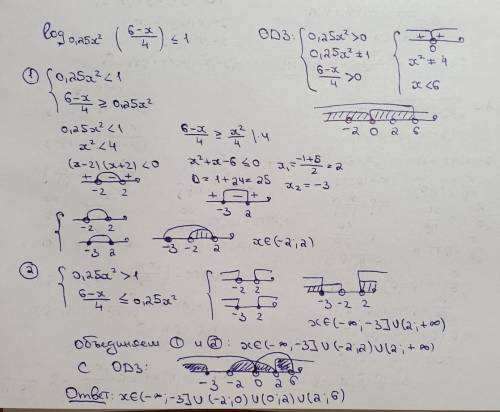 log₀,₂₅ₓ² ((6-x)/4) ≤ 1
ОДЗ: { 0,25x² > 0
0,25x² ≠ 1
(6-x)/4 > 0
{ + + 0
x² ≠ 4
x < 6
-2 0 2 6
① { 0,25x² < 1
(6-x)/4 ≥ 0,25x²
0,25x² < 1
x² < 4
(x-2)(x+2) < 0
+ - +
-2 2
(6-x)/4 ≥ x²/4 | ·4
x² + x - 6 ≤ 0
D = 1 + 24 = 25
+ - +
-3 2
x₁ = (-1+5)/2 = 2
x₂ = -3
{ -2 2
-3 2
-3 -2 2
x∈(-2; 2)
② { 0,25x² > 1
(6-x)/4 ≤ 0,25x²
{ -2 2
-3 2
-3 -2 2
x∈(-∞; -3]∪(2; +∞)
Объединяем ① и ②: x∈(-∞; -3]∪(-2; 2)∪(2; +∞)
С ОДЗ:
-3 -2 0 2 6
Ответ: x∈(-∞; -3]∪(-2; 0)∪(0; 2)∪(2; 6)